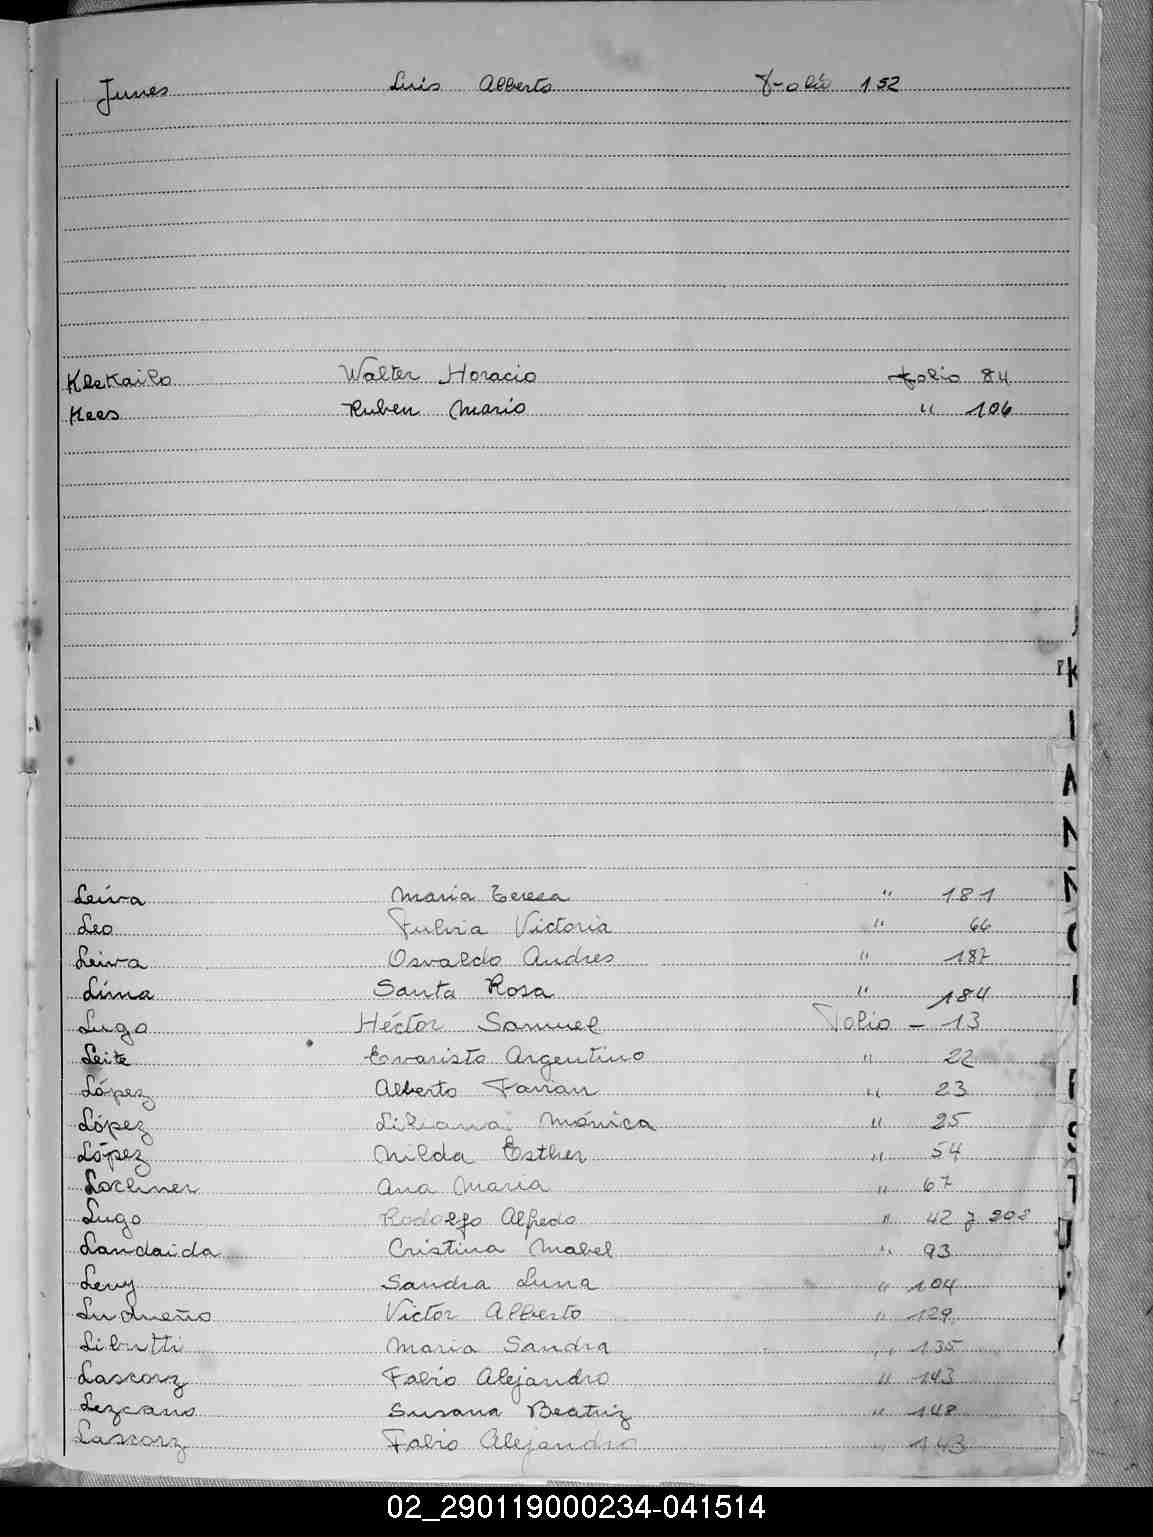 Junes Luis Alberto Folio 152
Klekailo Walter Horacio folio 84
Kees Ruben Mario " 106
Leiva Maria Teresa " 181
Leo Fulvia Victoria " 66
Leiva Osvaldo Andres " 187
Lima Santa Rosa " 184
Lugo Héctor Samuel Folio - 13
Leite Evaristo Argentino " 22
López Alberto Fabian " 23
López Liliana Mónica " 25
López Nilda Esther " 54
Lochner Ana Maria " 67
Lugo Rodolfo Alfredo " 42 y 202
Landaida Cristina Mabel " 93
Levy Sandra Luna " 104
Ludueño Victor Alberto " 129
Libutti Maria Sandra " 135
Lascorz Fabio Alejandro " 143
Lezcano Susana Beatriz " 148
Lascorz Fabio Alejandro " 143
K
L
M
N
Ñ
O
P
R
S
T
U
02_290119000234-041514